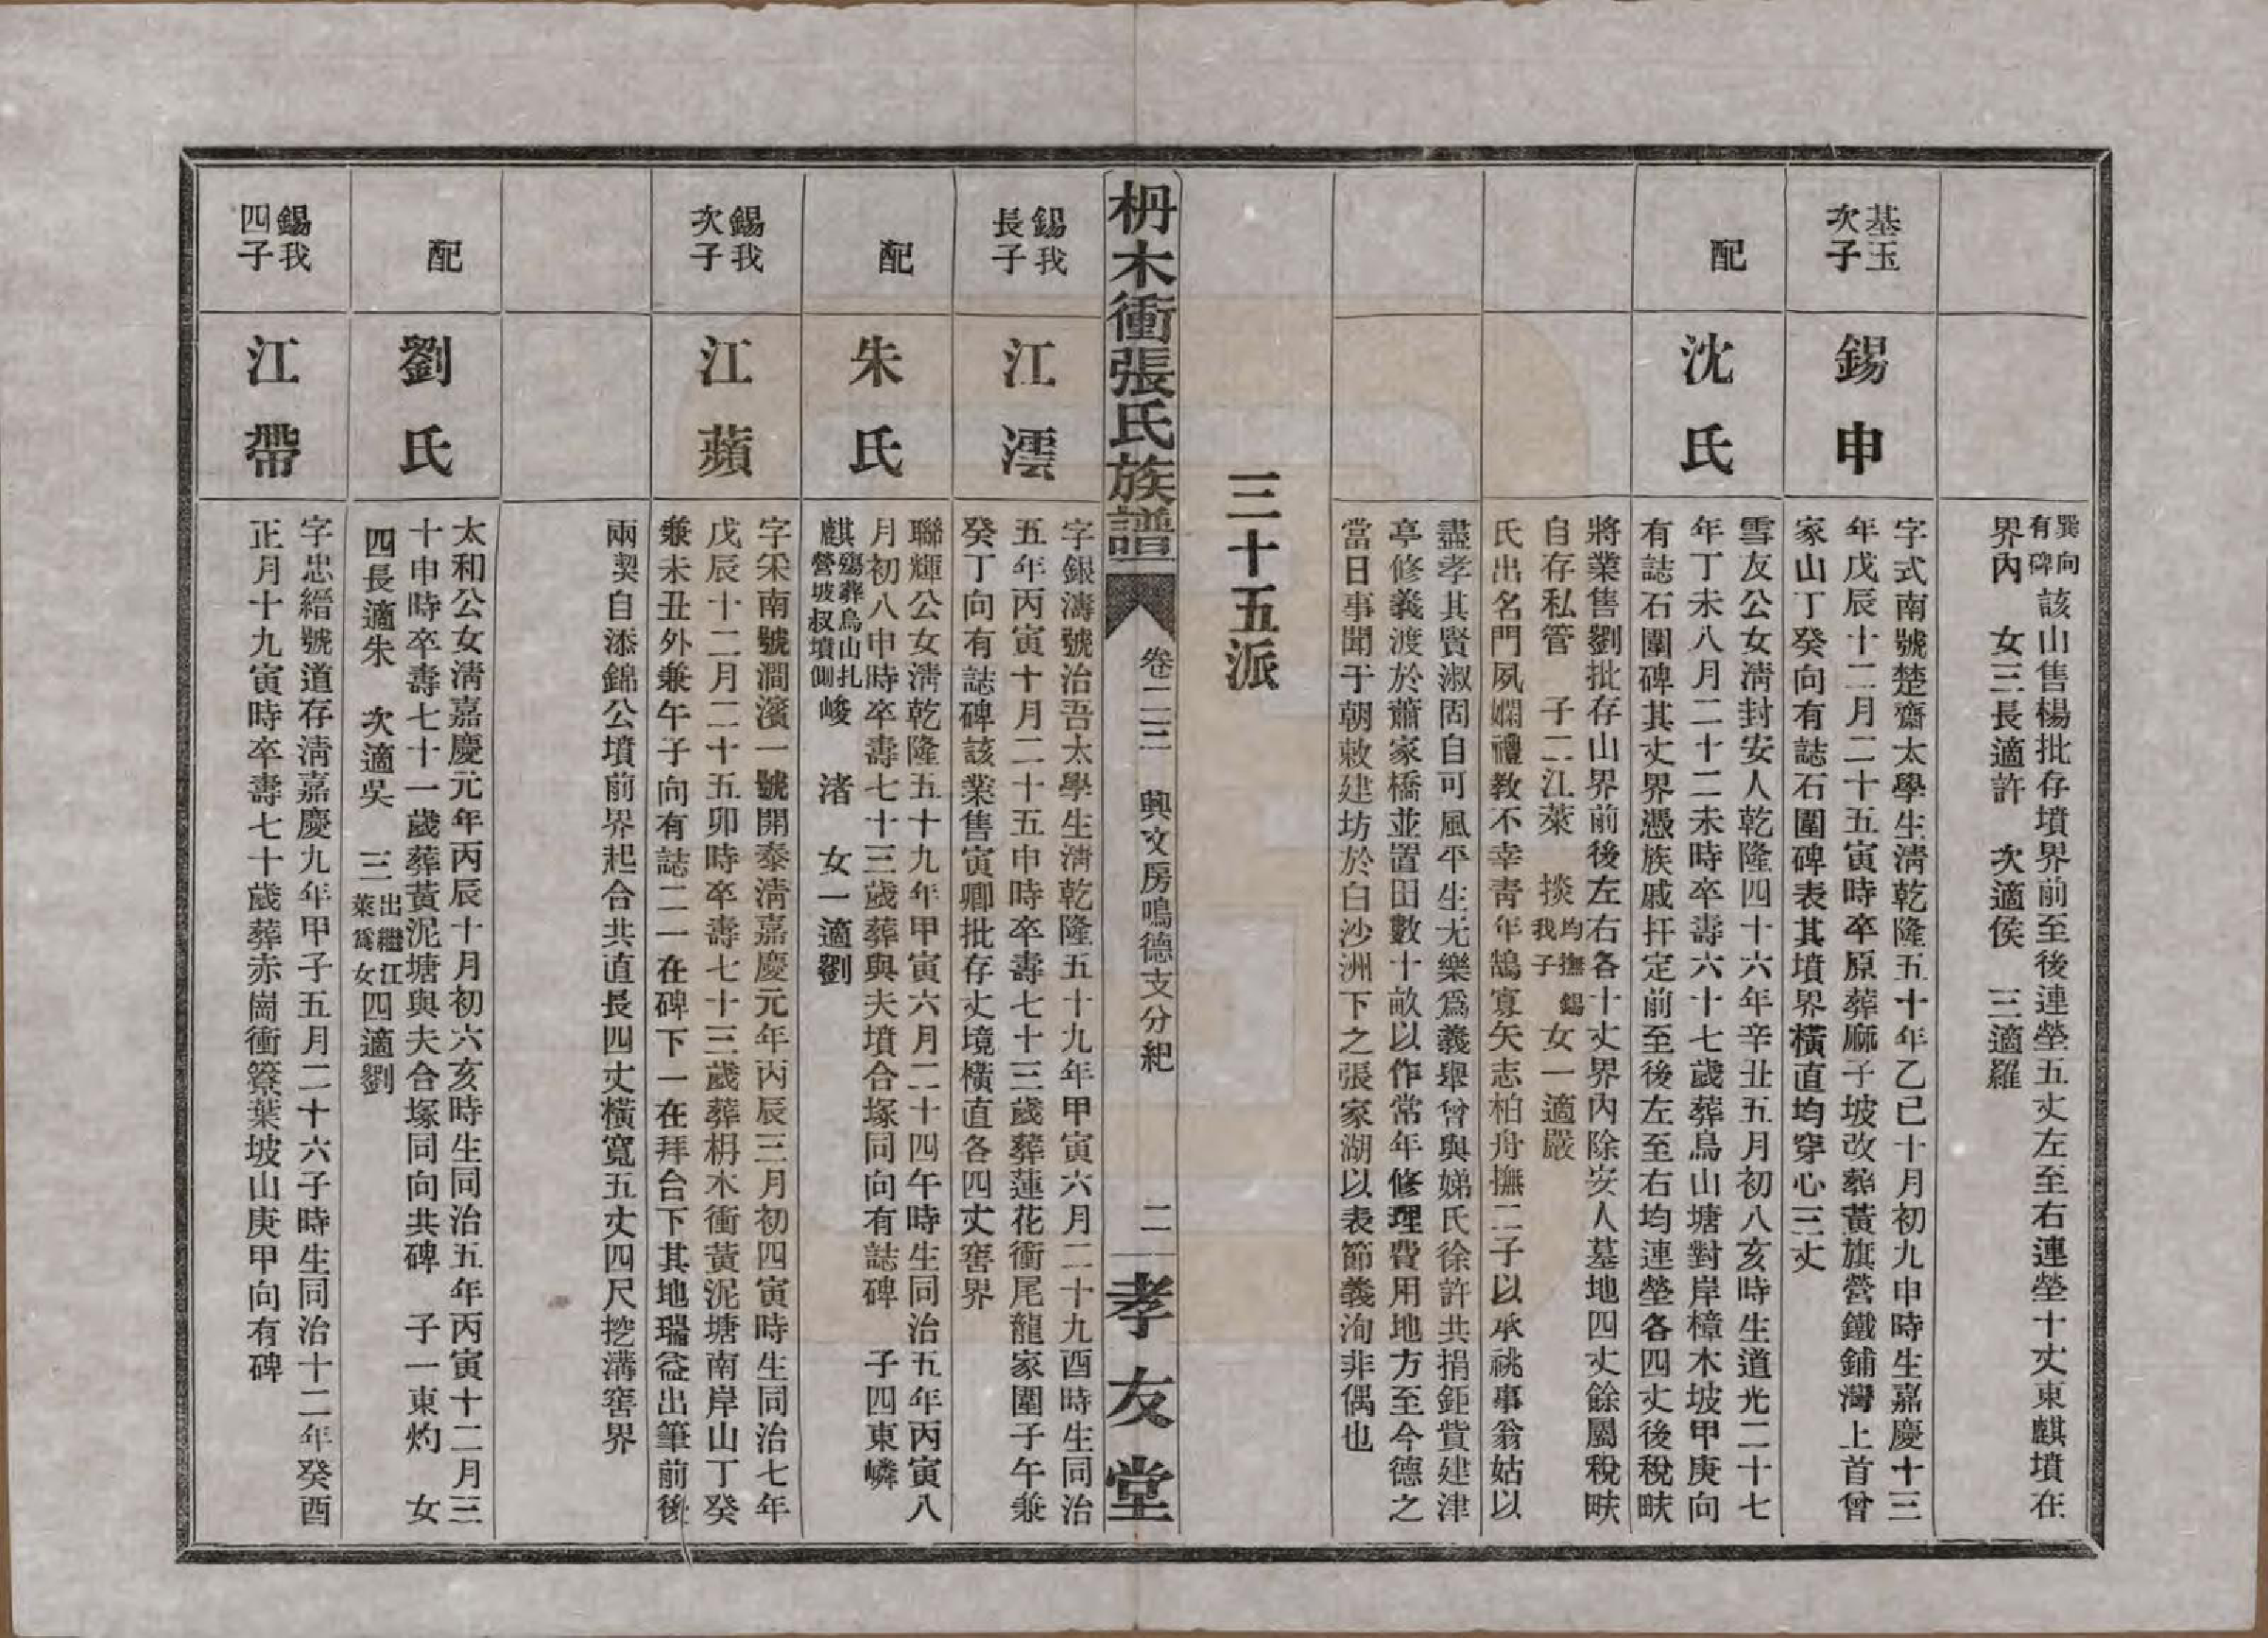 巽向有碑該山售楊批存墳界前至後連塋五丈左至右連塋十丈東麒墳在
界內　女三長適許　次適侯　三適羅
基玉
次子
錫申
字式南號楚齋太學生淸乾隆五十年乙巳十月初九申時生嘉慶十三
年戊辰十二月二十五寅時卒原葬廟子坡改葬黃旗營鐵鋪灣上首曾
家山丁癸向有誌石圍碑表其墳界橫直均穿心三丈
配
沈氏
雪友公女淸封安人乾隆四十六年辛丑五月初八亥時生道光二十七
年丁未八月二十二未時卒壽六十七歲葬烏山塘對岸樟木坡甲庚向
有誌石圍碑其丈界憑族戚扦定前至後左至右均連塋各四丈後稅畎
將業售劉批存山界前後左右各十丈界內除安人墓地四丈餘屬稅畎
自存私管　子二江萊　掞均撫錫我子　女一適嚴
氏出名門夙嫻禮教不幸靑年鵠寡矢志柏舟撫二子以承祧事翁姑以
盡孝其賢淑固自可風平生尤樂爲義舉曾與娣氏徐許共捐鉅貲建津
亭修義渡於蕭家橋並置田數十畝以作常年修理費用地方至今德之
當日事聞于朝敕建坊於白沙洲下之張家湖以表節義洵非偶也
三十五派
枬木衝張氏族譜
卷二三　興文房鳴德支分紀
二
孝友堂
錫我
長子
江澐
字銀濤號治吾太學生淸乾隆五十九年甲寅六月二十九酉時生同治
五年丙寅十月二十五申時卒壽七十三歲葬蓮花衝尾龍家圍子午兼
癸丁向有誌碑該業售寅卿批存丈境橫直各四丈窖界
配
朱氏
聯輝公女淸乾隆五十九年甲寅六月二十四午時生同治五年丙寅八
月初八申時卒壽七十三歲葬與夫墳合塚同向有誌碑　子四東嶙
麒殤葬烏山扎營坡叔墳側　峻　渚　女一適劉
錫我
次子
江蘋
字采南號澗濱一號開泰淸嘉慶元年丙辰三月初四寅時生同治七年
戊辰十二月二十五卯時卒壽七十三歲葬枬木衝黃泥塘南岸山丁癸
兼未丑外兼午子向有誌二一在碑下一在拜台下其地瑞益出筆前後
兩契自添錦公墳前界起合共直長四丈橫寬五丈四尺挖溝窖界
配
劉氏
太和公女淸嘉慶元年丙辰十月初六亥時生同治五年丙寅十二月三
十申時卒壽七十一歲葬黃泥塘與夫合塚同向共碑　子一東灼　女
四長適朱　次適吳　三出繼江萊爲女　四適劉
錫我
四子
江帶
字忠縉號道存淸嘉慶九年甲子五月二十六子時生同治十二年癸酉
正月十九寅時卒壽七十歲葬赤崗衝簝葉坡山庚甲向有碑